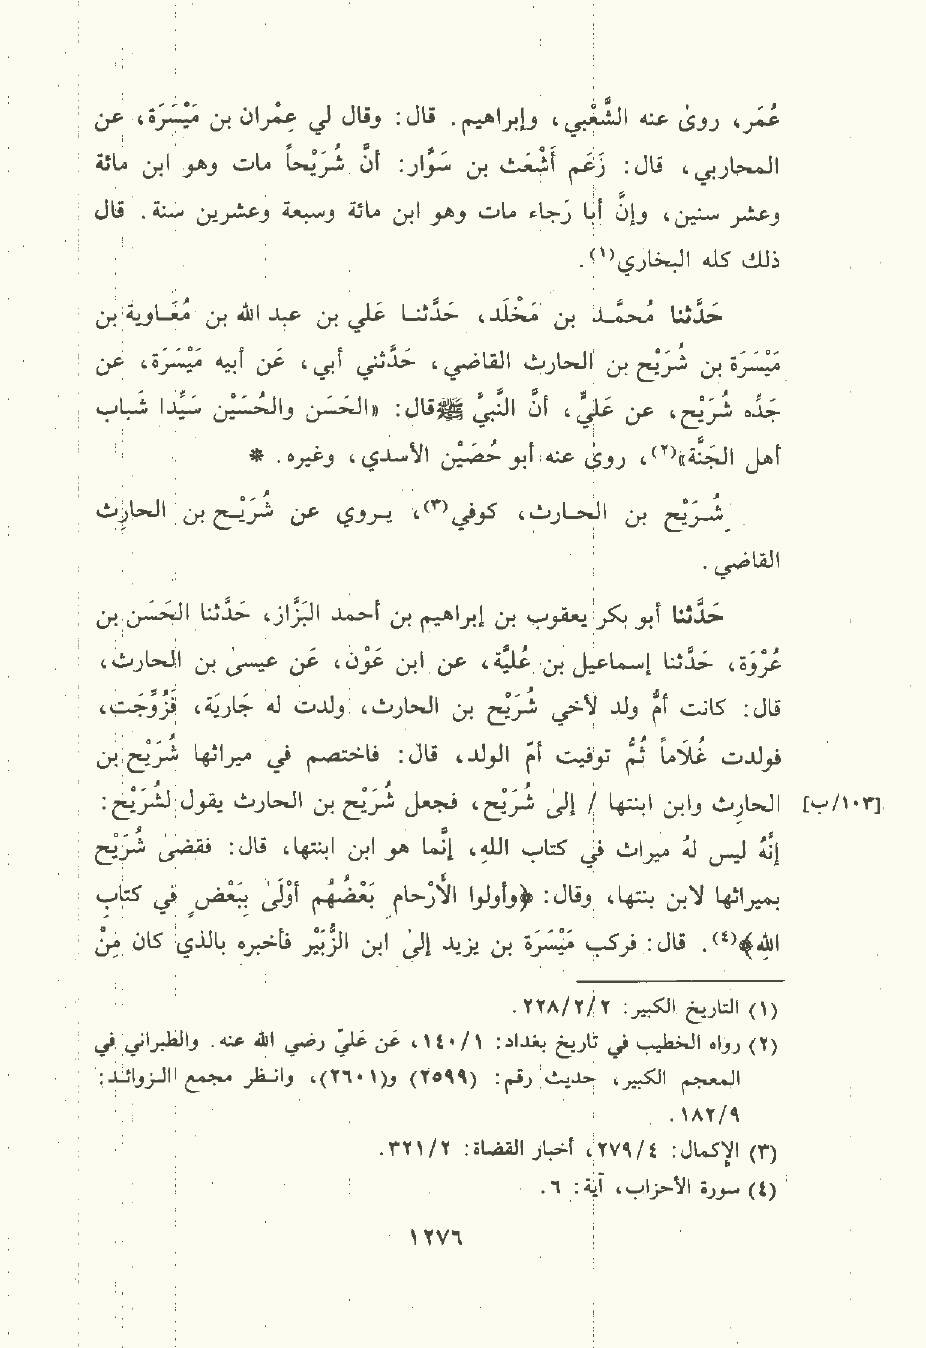 عُمَر، روىٰ عنه الشَّعْبي، وإبراهيم. قال: وقال لي عِمْران بن مَيْسَرَة، عن
المحاربي، قال: زَعَم أَشْعَث بن سَوَّار: أنَّ شُرَيْحاً مات وهو ابن مائة
وعشر سنين، وإنَّ أبا رَجاء مات وهو ابن مائة وسبعة وعشرين سنة. قال
ذلك كله البخاري(١).
حَدَّثنا مُحمَّـد بن مَخْلَد، حَدَّثنا عَلي بن عبد الله بن مُعَـاوية بن
مَيْسَرَة بن شُرَيْح بن الحارث القاضي، حَدَّثني أبي، عَن أبيه مَيْسَرَة، عن
جَدِّه شُرَيْح، عن عَليٍّ، أنَّ النَّبيَّ ﷺ قال: «الحَسَن والحُسَيْن سَيِّدا شَباب
أهل الجَنَّة»(٢)، روى عنه أبو حُصَيْن الأسدي، وغيره. *
شُـرَيْح بن الحـارث، كوفي(٣)، يـروي عن شُرَيْـح بن الحارِث
القاضي.
حَدَّثنا أبو بكر يعقوب بن إبراهيم بن أحمد البَزَّاز، حَدَّثنا الحَسَن بن
عُرْوَة، حَدَّثنا إسماعيل بن عُليَّة، عن ابن عَوْن، عَن عيسىٰ بن الحارث،
قال: كانت أُم ولد لأخي شُرَيْح بن الحارث، ولدت له جَارَية، فَزُوِّجَت،
فولدت غُلَاماً ثُمَّ توفيت أم الولد، قال: فاختصم في ميراثها شُرَيْح بن
الحارِث وابن ابنتها / إلىٰ شُرَيْح، فجعل شُرَيْح بن الحارث يقول لشُرَيْح: [١٠٣/ب]
إنَّه ليس لهُ ميراث في كتاب اللهِ، إنَّما هو ابن ابنتها، قال: فقضىٰ شُرَيْح
بميراثها لابن بنتها، وقال: ﴿وأُولوا الأرْحام بَعْضُهُم أوْلَىٰ بِبَعْضٍ في كِتاب
اللهِ﴾(٤). قال: فركب مَيْسَرَة بن يزيد إلىٰ ابن الزُّبَيْر فأخبره بالذي كان مِنْ
(١) التاريخ الكبير: ٢/٢/٢٢٨.
(٢) رواه الخطيب في تاريخ بغداد: ١/١٤٠، عَن عَليِّ رضي الله عنه. والطبراني في
المعجم الكبير، حديث رقم: (٢٥٩٩) و(٢٦٠١)، وانـظر مجمع الـزوائـد:
٩/١٨٢.
(٣) الإكمال: ٤/٢٧٩، أخبار القضاة: ٢/٣٢١.
(٤) سورة الأحزاب، آية: ٦.
١٢٧٦